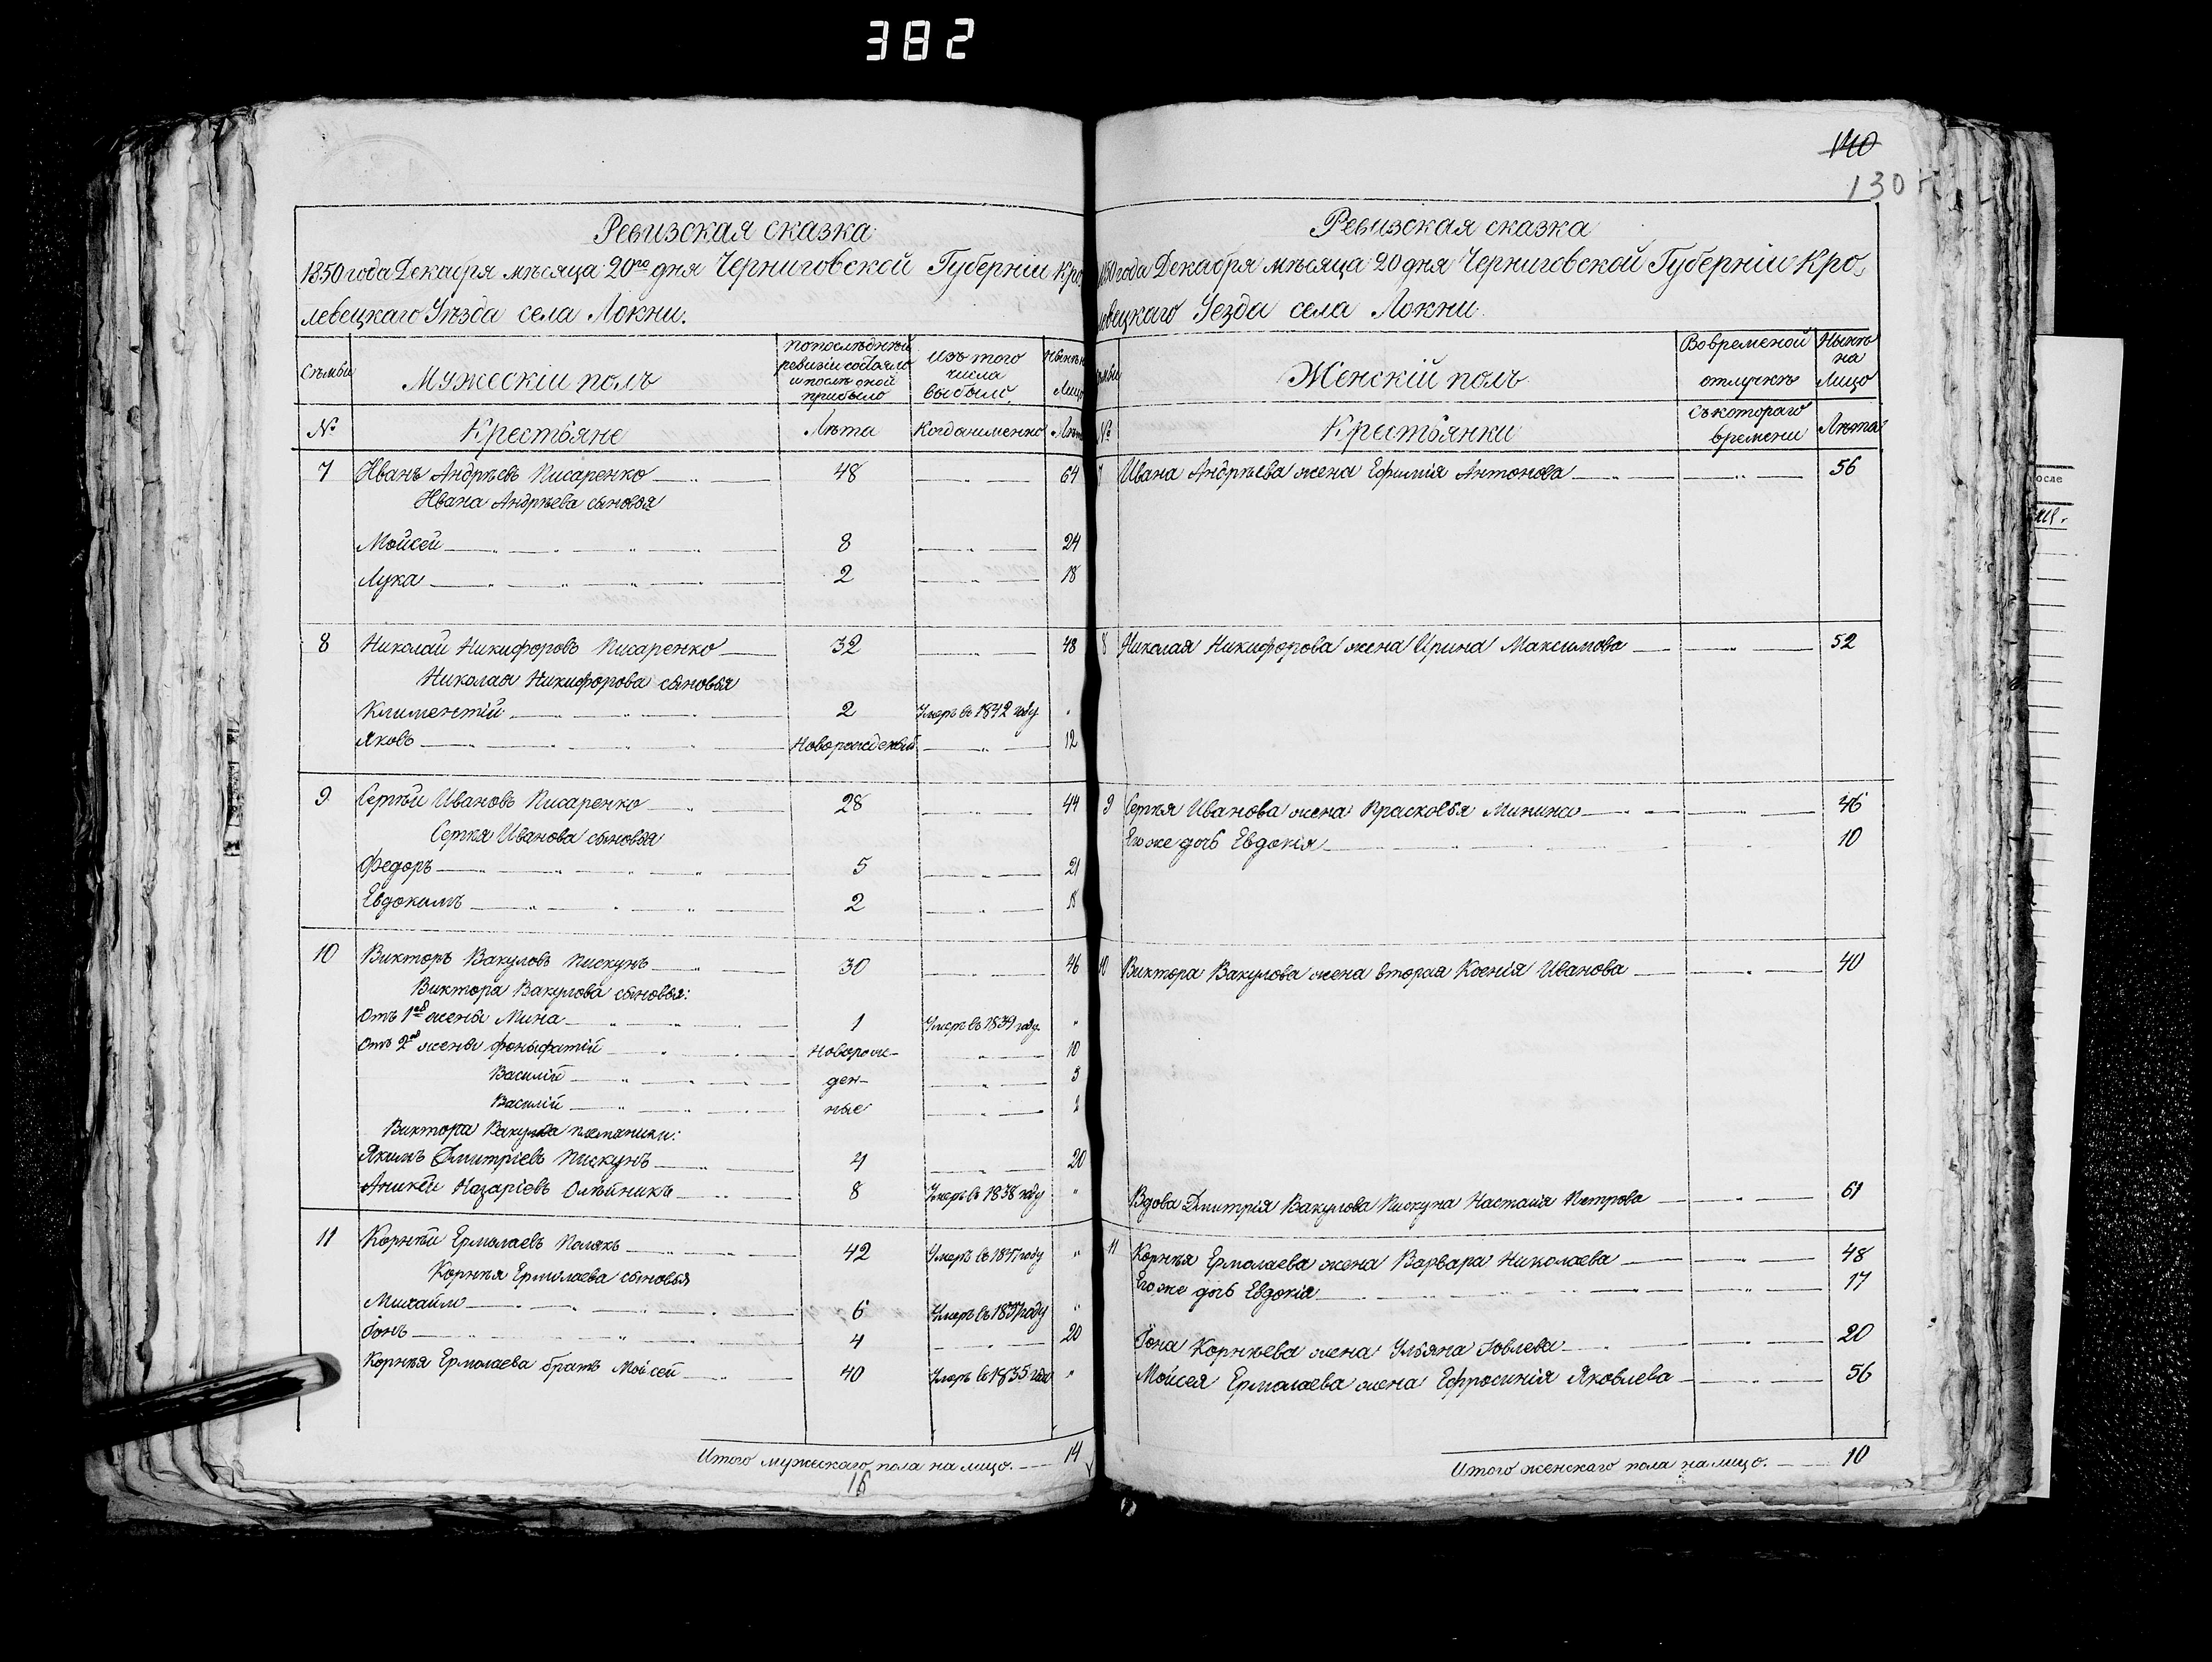 382
Ревизская сказка
1850 года Декабря мѣсяца 20го дня Черниговской Губерніи Кро-
левецкаго Уѣзда села Локни.
Съмьи
Мужескій полъ
По послѣдней ревизіи состояло и послѣ оной прибыло
Изъ того числа выбыло.
Нынѣ на Лицо
№
Крестьяне
Лѣта
Когда именно
Лѣта
7 Иванъ Андрѣевъ Писаренко 48 64
Ивана Андрѣева сыновья
Мойсей 8 24
Лука 2 18
8 Николай Никифоровъ Писаренко 32 48
Николая Никифорова сыновья
Климентій 2 Умеръ въ 1842 году "
Яковъ Новорожденый 12
9 Сергѣй Ивановъ Писаренко 28 44
Сергѣя Иванова сыновья
Федоръ 5 21
Евдокимъ 2 18
10 Викторъ Вакуловъ Пискунъ 30 46
Виктора Вакулова сыновья:
Отъ 1ой жены Мина 1 Умеръ въ 1839 году "
Отъ 2ой жены Фоныфатій Новорож- 10
Василій ден- 5
Василій ные 2
Виктора Вакулова племяники:
Якимъ Дмитріевъ Пискунъ 4 20
Аникѣй Назаріевъ Олѣйникъ 8 Умеръ въ 1838 году "
11 Корнѣй Ермолаевъ Полякъ 42 Умеръ въ 1847 году "
Корнѣя Ермолаева сыновья
Михайло 6 Умеръ въ 1837 году "
Іонъ 4 20
Корнѣя Ермолаева братъ Мойсей 40 Умеръ въ 1835 году "
Итого мужескаго пола на лицо. 14
16
140
130
Ревизская сказка
1850 года Декабря мѣсяца 20 дня Черниговской Губерніи Кро-
левецкаго Уезда села Локни
Женскій полъ
Во временой отлучкѣ
Нынѣ на Лицо
№
Крестьянки
Съ котораго времени
Лѣта
7 Ивана Андрѣева жена Ефимія Антонова 56
8 Николая Никифорова жена Ирина Максимова 52
9 Сергѣя Иванова жена Прасковья Минина 46
Его же дочь Евдокія 10
10 Виктора Вакулова жена вторая Ксенія Иванова 40
Вдова Дмитрія Вакулова Пискуна Насталія Петрова 61
11 Корнѣя Ермолаева жена Варвара Николаева 48
Его же дочь Евдокія 17
Іона Корнѣева жена Ульяна Іовлева 20
Мойсея Ермолаева жена Ефросинія Яковлева 56
Итого женскаго пола на лицо. 10